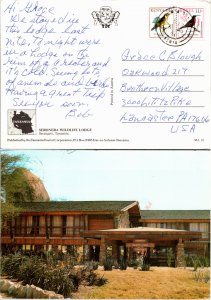 Hi Grace
We stayed in
this lodge last
nite, Tonight were
in a Lodge on the
rim of a crater and
it's cold. Seeing lots
of animals and birds
Having a great trip
See you soon
Bob
TANZANIA
SERONERA WILDLIFE LODGE
Serengeti, Tanzania
KENYA
KENYA
Grace Clough
Oakwood 217
Brethren Village
3000 Lititz Pike
Lancaster, PA 17606
USA